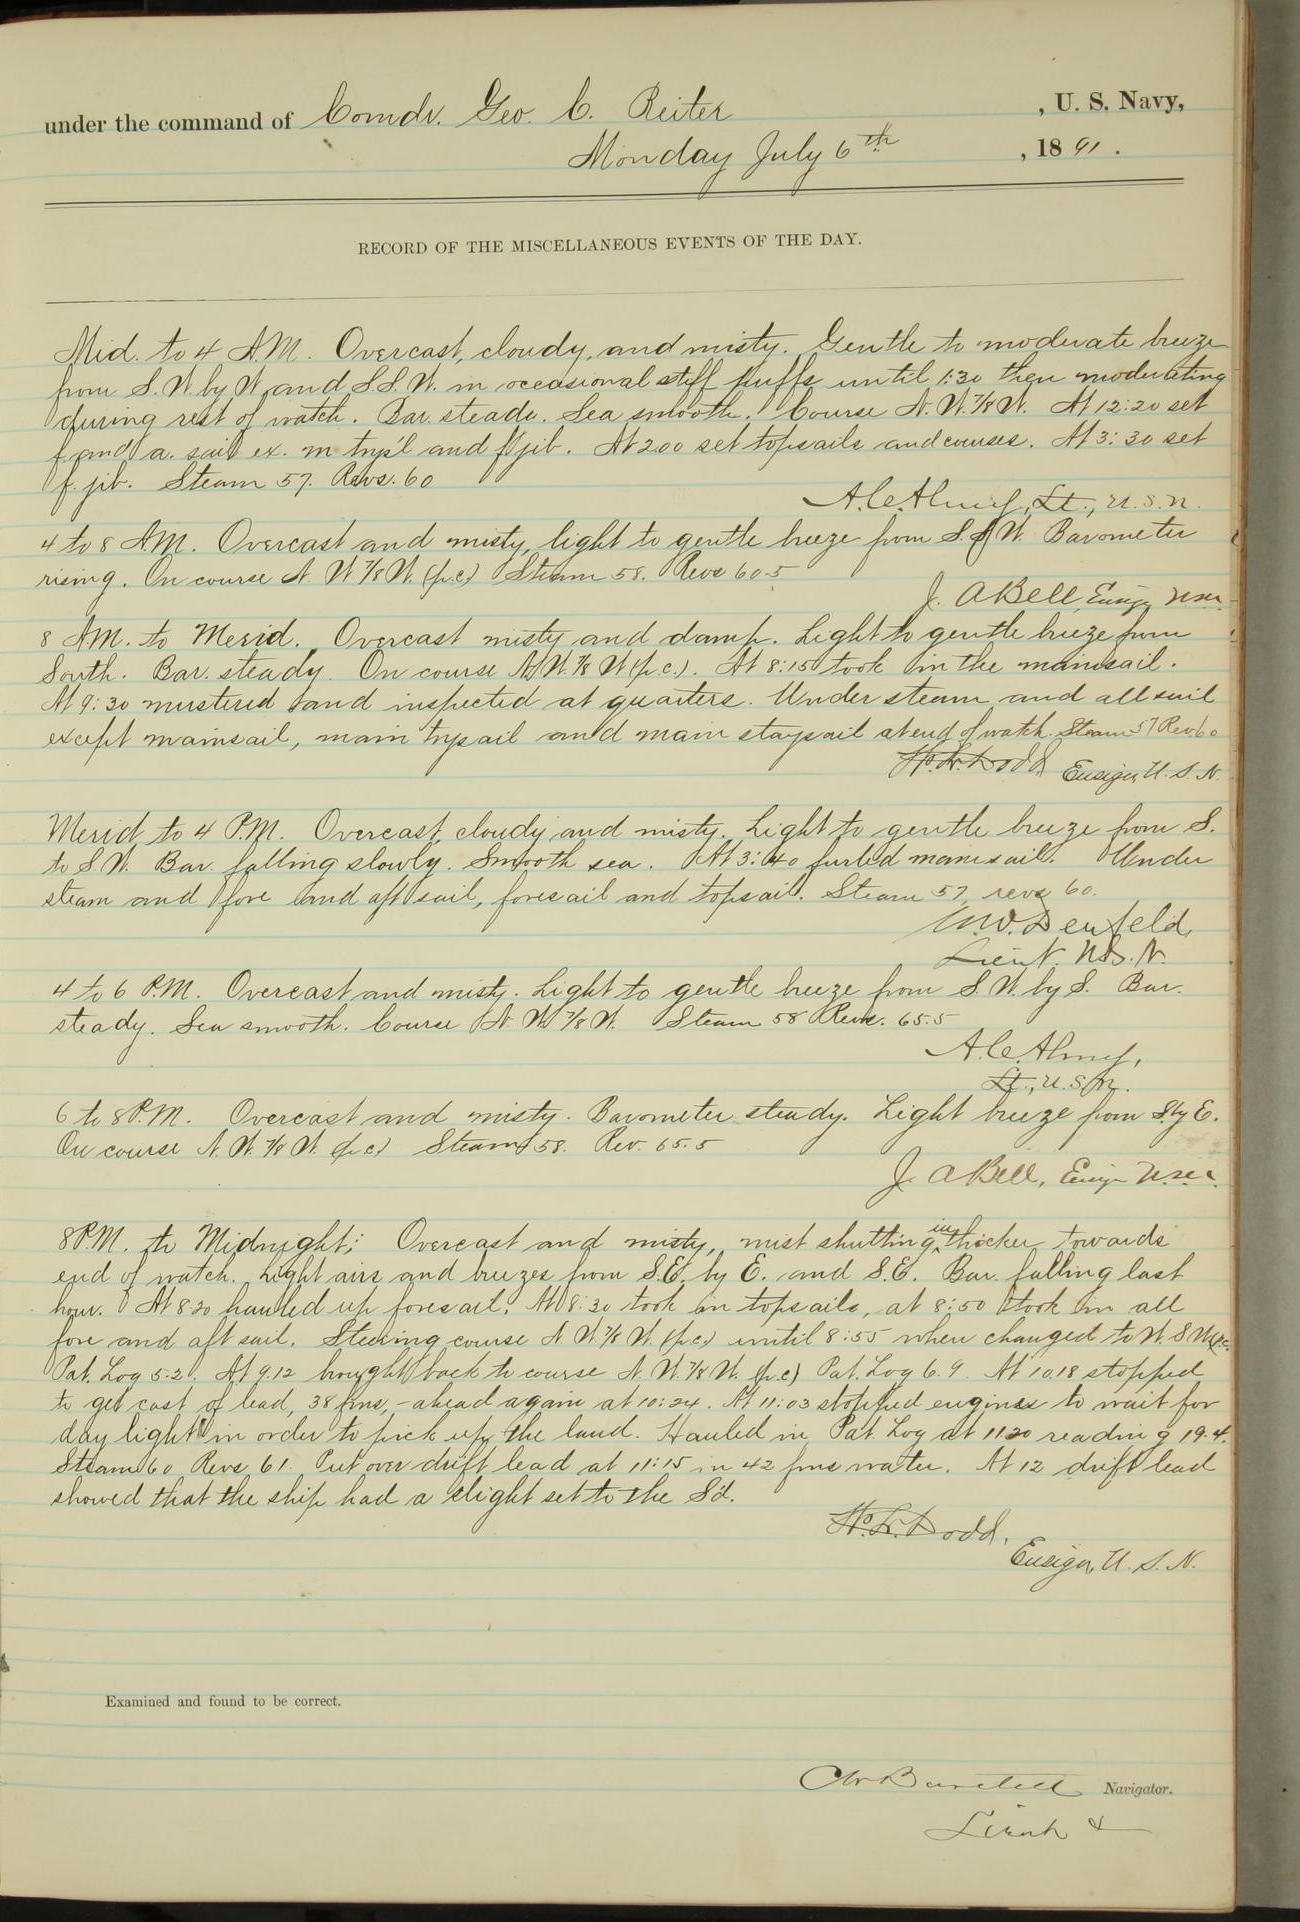 under the command of Comdr. Geo. C. Reiter , U. S. Navy,
Monday July 6th , 1891.
RECORD OF THE MISCELLANEOUS EVENTS OF THE DAY.
Mid. to 4 A.M. Overcast, cloudy, and misty. Gentle to moderate breeze
from S.W. by W. and S.S.W. in occasional stiff puffs until 1:30 then moderating
during rest of watch. Bar. steady. Sea smooth. Course N.W. 7/8 W. At 12:20 set
f. and a. sail ex. m trys'l and f. jib. At 2.00 set topsails and courses. At 3:30 set
f. jib. Steam 57. Revs. 60
A.C. Almy, Lt., U.S.N.
4 to 8 A.M. Overcast and misty, light to gentle breeze from S.S.W. Barometer
rising. On course N. W 7/8 W. (p.c.) Steam 58. Revs 60.5
J. A Bell, Ensign USN.
8 AM. to Merid. Overcast misty and damp. Light to gentle breeze from
South. Bar. steady. On course N.W. 7/8 W (p.c.). At 8:15 took in the mainsail.
At 9:30 mustered and inspected at quarters. Under steam and all sail
except mainsail, main trysail and main staysail at end of watch. Steam 57 Rev. 60
Dodd, Ensign, U.S.N.
Merid. to 4 P.M. Overcast, cloudy and misty. Light to gentle breeze from S.
to S.W. Bar. falling slowly. Smooth sea. At 3:40 furled mainsail. Under
steam and fore and aft sail, foresail and topsail. Steam 57, revs 60.
Denfeld,
Lieut. U.S.N.
4 to 6 P.M. Overcast and misty. Light to gentle breeze from S.W. by S. Bar.
steady. Sea smooth. Course N. W. 7/8 W. Steam 58 Revs. 65.5
A.C. Almy,
Lt., U.S.N.
6 to 8 P.M. Overcast and misty. Barometer steady. Light breeze from S. by E.
On course N. W. 7/8 W. (p.c.) Steam 58. Rev. 65.5
J. A Bell, Ensign U.S.N.
8 P.M. to Midnight: Overcast and misty, mist shutting in thicker towards
end of watch. Light airs and breezes from S.E. by E. and S.E. Bar. falling last
hour. At 8 20 hauled up foresail. At 8:30 took in topsails, at 8:50 took in all
fore and aft sail. Steering course N W. 7/8 W. (p.c.) until 8:55 when changed to W. S W (p.c.
Pat. Log 5.2. At 9.12 brought back to course N. W. 7/8 W. (p.c) Pat. Log 6.9. At 10.18 stopped
to get cast of lead, 38 fms, - ahead again at 10:24. At 11:03 stopped engines to wait for
day light in order to pick up the land. Hauled in Pat. Log at 11.20 reading 19.4.
Steam 60 Revs 61. Put over drift lead at 11:15 in 42 fms water. At 12 drift lead
showed that the ship had a slight set to the S'd.
Dodd,
Ensign, U.S.N.
Examined and found to be correct.
Bartlett Navigator.
Lieut